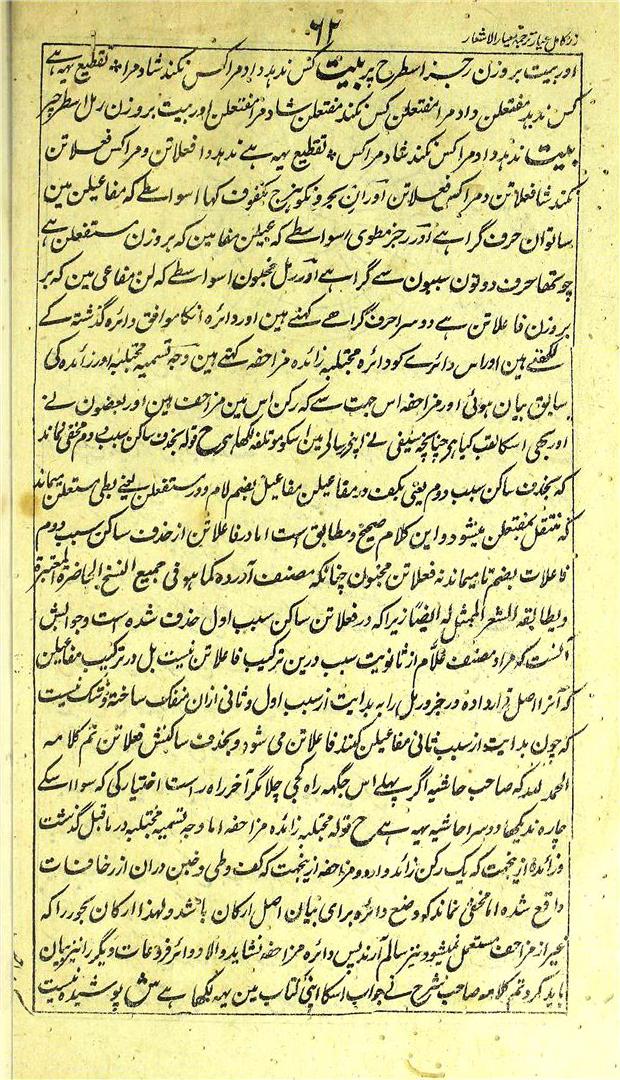 زر کامل عیار ترجمہ معیار الاشعار
۶۲
اور بیت بروزن رجز اسطرح پر بیت کس ندہد داد مرا کس نکند شاد مرا ٭ تقطیع یہہ ہے
کس ندہد مفتعلن داد مرا مفتعلن کس نکند مفتعلن شاد مرا مفتعلن اور بیت بروزن رمل اسطرح پر
بیت ندہد داد مرا کس نکند شاد مرا کس ٭ تقطیع یہہ ہے ندہد دا فعلاتن د مرا کس فعلاتن
نکند شا فعلاتن د مرا کس فعلاتن اور ان بحرونکو ہزج مکفوف کہا اسواسطے کہ مفاعیلن مین
ساتوان حرف گرا ہے اور رجز مطوی اسواسطے کہ عیلن مفا مین کہ بروزن مستفعلن ہے
چوتھا حرف دونون سببون سے گرا ہے اور رمل مخبون اسواسطے کہ لن مفاعی مین کہ بر
بروزن فاعلاتن ہے دوسرا حرف گرا ہے کہتے ہین اور دائرہ انکا موافق دائرہ گذشتہ کے
لکھتے ہین اور اس دائرے کو دائرہ مجتلبہ زائدہ مزاحفہ کہتے ہین وجہ تسمیہ مجتلبہ اور زائدہ کی
سابق بیان ہوئی اور مزاحفہ اس جہت سے کہ رکن اس مین مزاحف ہین اور بعضون نے
اور بھی اسکا لقب کیا ہی چنانچہ سیفی نے اپنی رسالی مین اسکو موتلفہ لکھا ہی ح قولہ بحذف ساکن سبب دوم مخفی نماند
کہ بحذف ساکن سبب دوم یعنی بکف در مفاعیلن مفاعیل بضم لام و در مستفعلن یعنی بطی مستعلن میماند
کہ منتقل بمفتعلن میشود و این کلام صحیح و مطابق ست اما در فاعلاتن از حذف ساکن سبب دوم
فاعلات بضم تا میماند نہ فعلاتن مخبون چنانکہ مصنف آوردہ کما ہو فی جمیع النسخ الحاضرۃ المعتبرۃ
ویطابقہ الشعر الممثل لہ ایضا زیرا کہ در فعلاتن ساکن سبب اول حذف شدہ ست وجوابش
آنست کہ مراد مصنف علام از ثانویت سبب درین ترکیب فاعلاتن نیست بل در ترکیب مفاعیلن
کہ آنرا اصل قرار دادہ و رجز و رمل را بہ بدایت از سبب اول و ثانی ازان منفک ساختہ و شک نیست
کہ چون بدایت از سبب ثانی مفاعیلن کنند فاعلاتن می شود و بحذف ساکنش فعلاتن تم کلامہ
الحمد للہ کہ صاحب حاشیہ اگر پہلے اس جگہہ راہ کجی چلا مگر آخر راہ راست اختیار کی کہ سوا اسکے
چارہ ندیکھا دوسرا حاشیہ یہہ ہے ح قولہ مجتلبہ زائدہ مزاحفہ اما وجہ تسمیہ مجتلبہ در ما قبل گذشت
و زائدہ ازینجہت کہ یک رکن زائد دارد و مزاحفہ ازینجہت کہ کف و طی و خبن دران از زحافات
واقع شدہ اما مخفی نماند کہ وضع دائرہ برای بیان اصل ارکان باشد و لہذا ارکان بحور را کہ
غیر از مزاحف مستعمل نمیشود نیز سالم آرند پس دائرہ مزاحفہ نشاید والا دوائر فروعات دیگر را نیز بیان
باید کرد تم کلامہ صاحب شرح نے جواب اسکا اپنی کتاب مین یہہ لکھا ہے ش پوشیدہ نیست